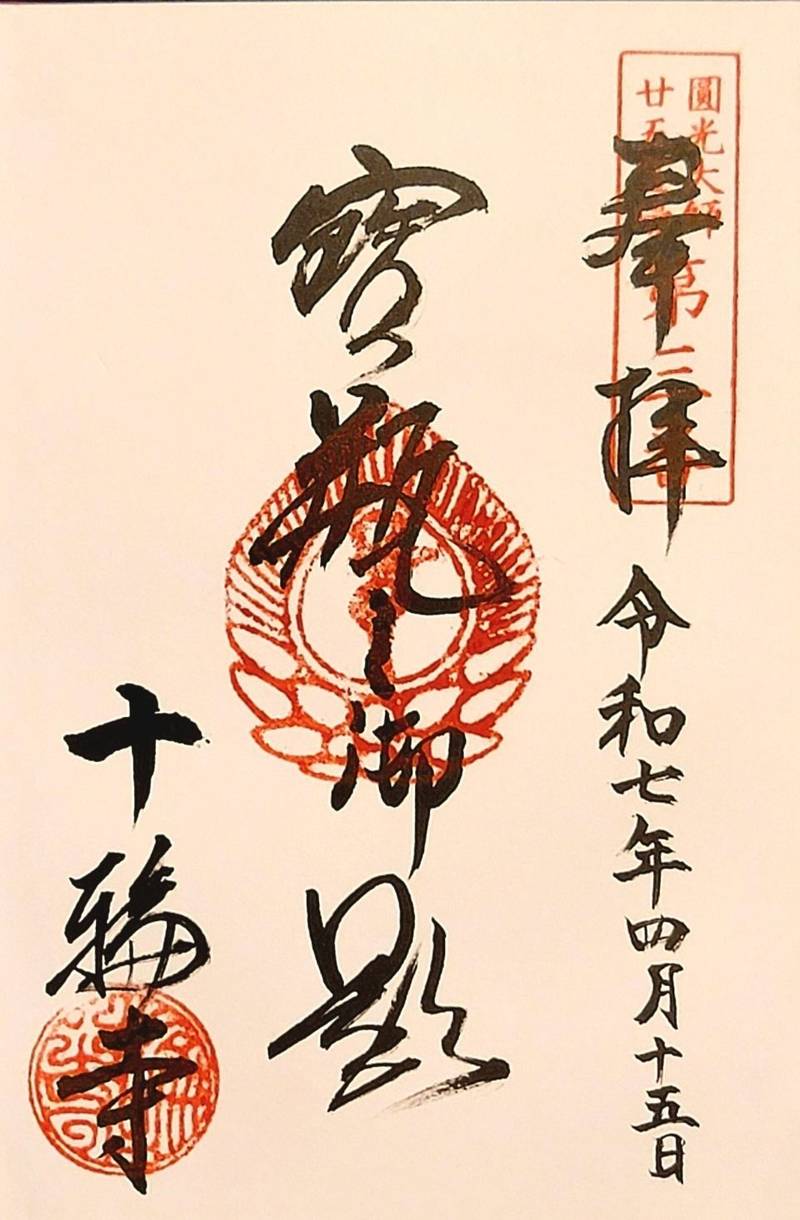 圓光大師
廿五
第三番
奉拝
令和七年四月十五日
寶瓶之御影
十輪寺